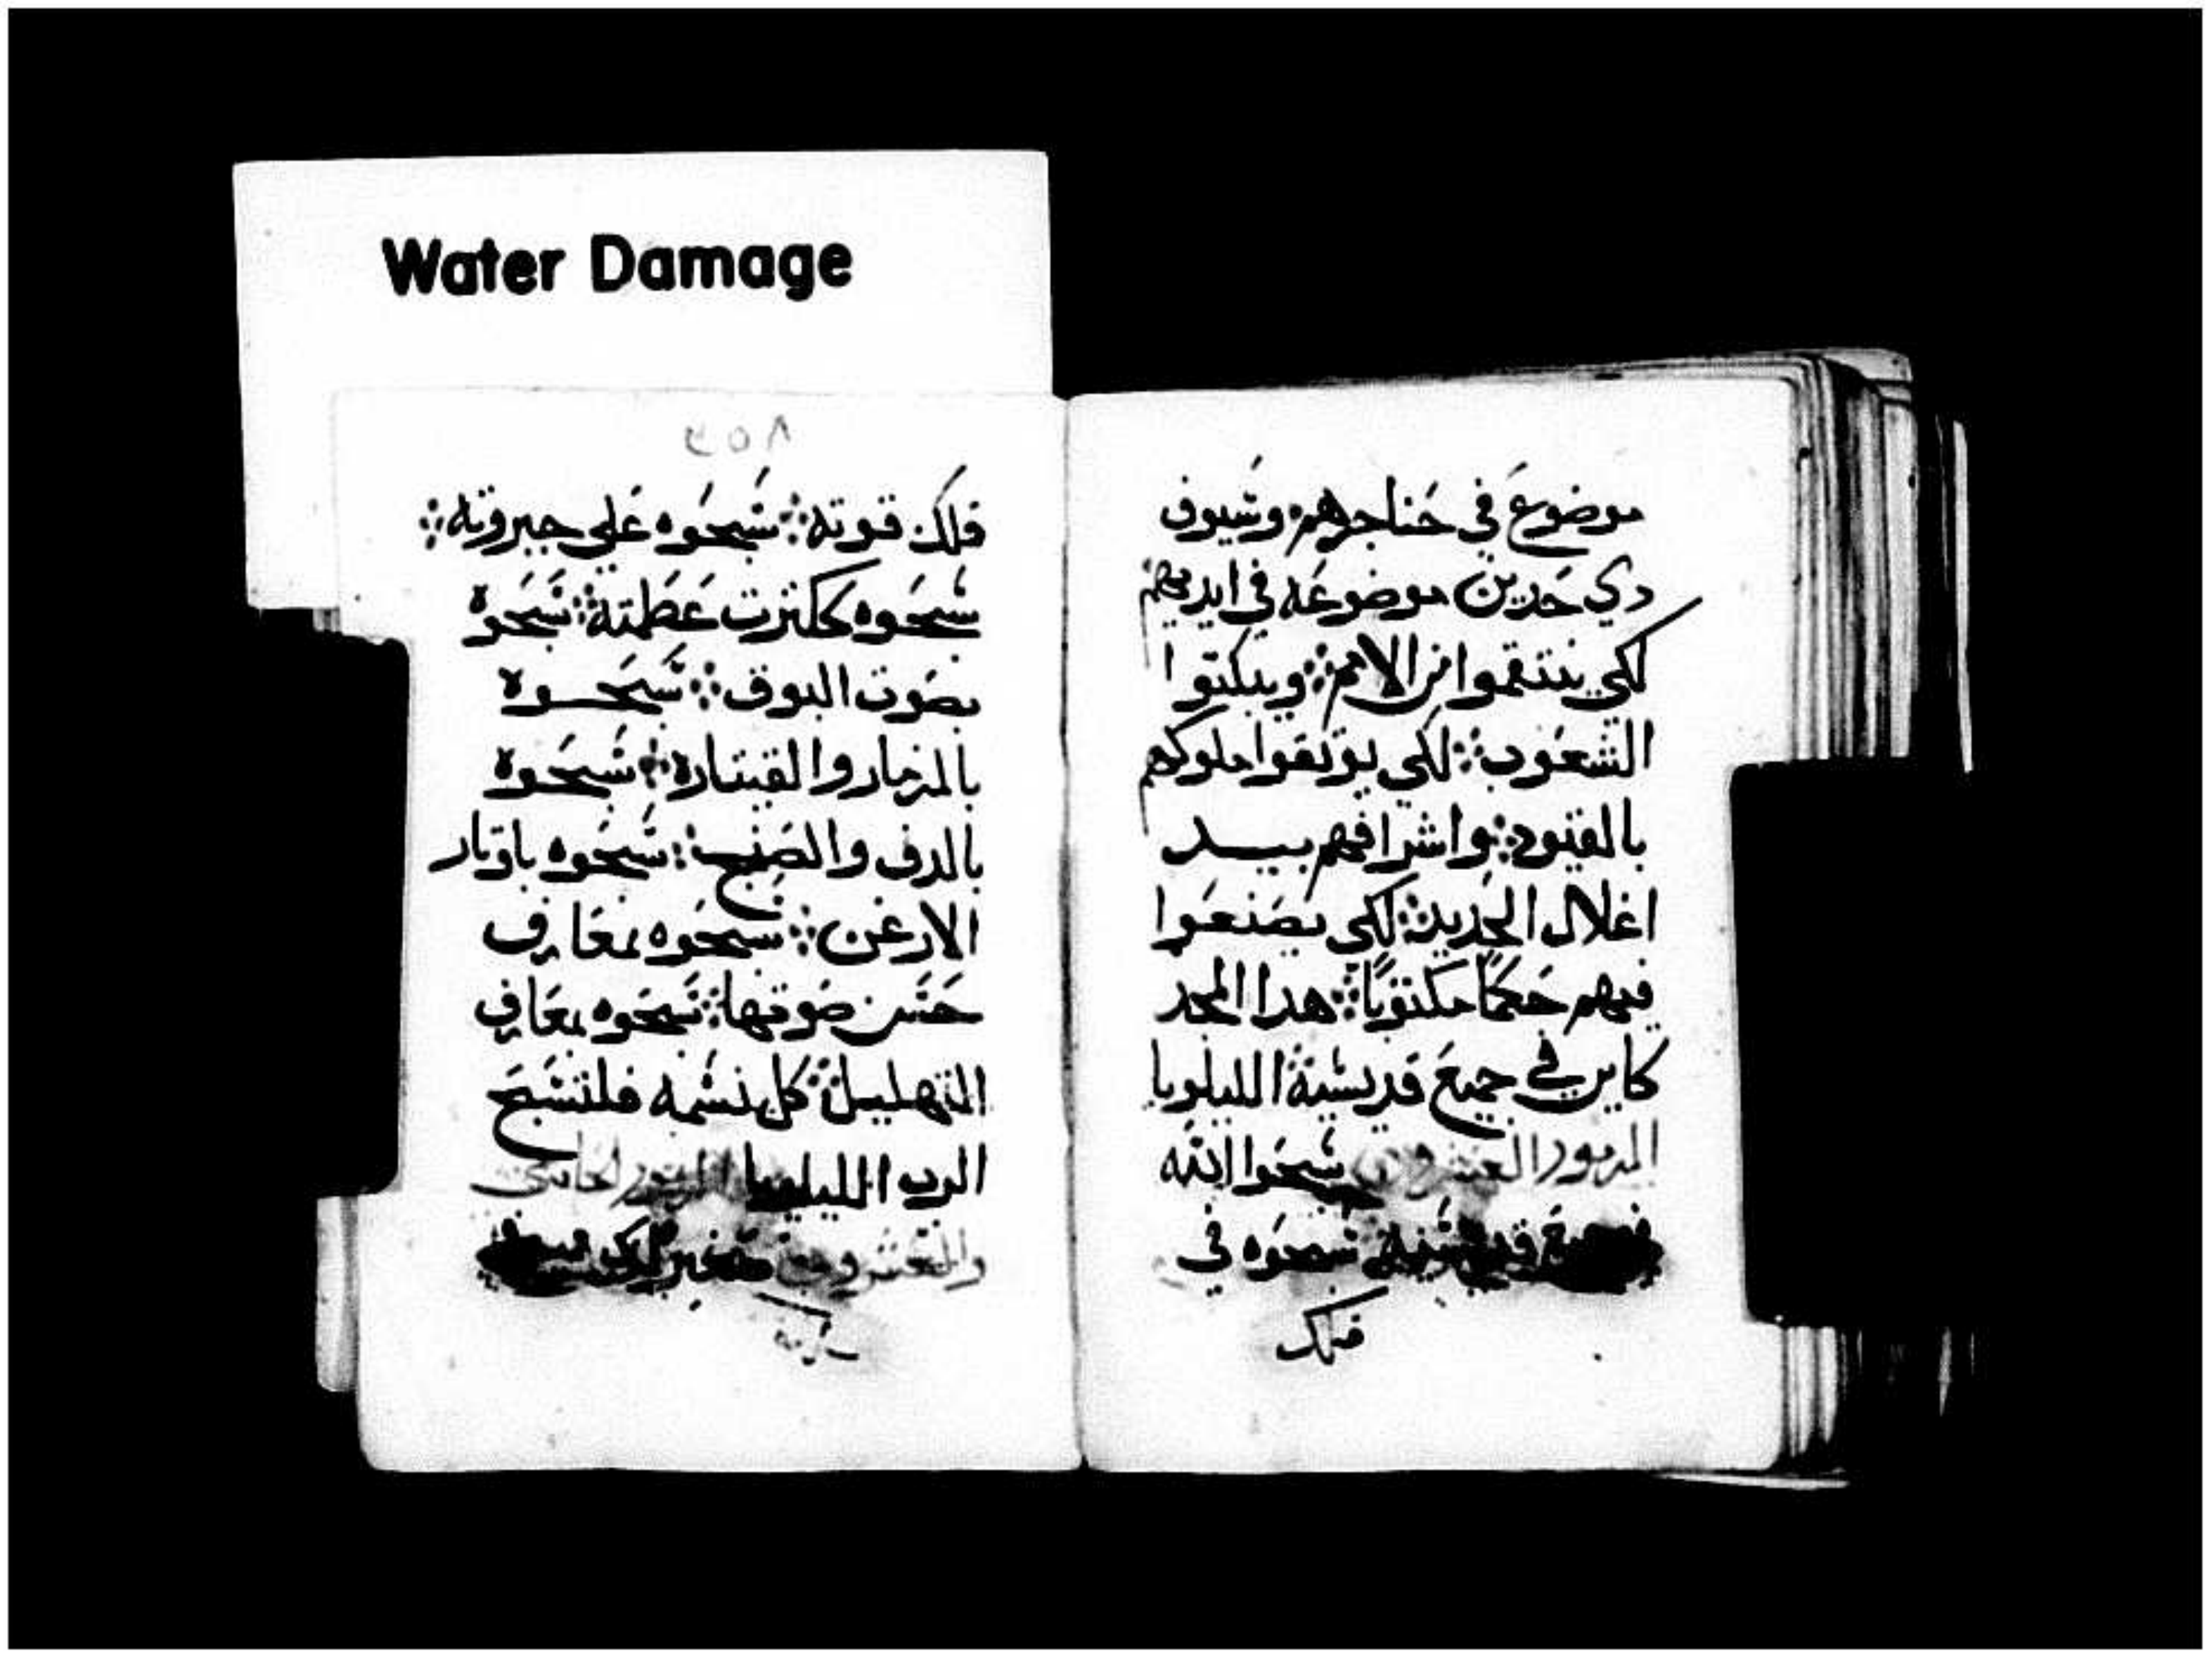 Water Damage
موضوع في حناجرهم وسيوف
دي حدين موضوعه في ايديهم
لكي ينتقموا من الامم ويبكتوا
الشعوب لكي يوثقوا ملوكهم
بالقيود واشرافهم بيد
اغلال الحديد لكي يصنعوا
فيهم حكما مكتوبا هدا المجد
كاين في جميع قديسيه الليلويا
المزمور العشرون سبحوا الله
في جميع قديسيه سبحوه في
فلك
٢٥٨
فلك قوته سبحوه علي جبروته
سبحوه ككثرت عظمته سبحوه
بصوت البوق سبحوه
بالمزمار والقيتاره سبحوه
بالدف والصنج سبحوه باوتار
الارغن سبحوه بمعازف
حسن صوتها سبحوه بمعازف
التهليل كل نسمه فلتسبح
الرب الليلويا المزمور الحادي
والعشرون صغير